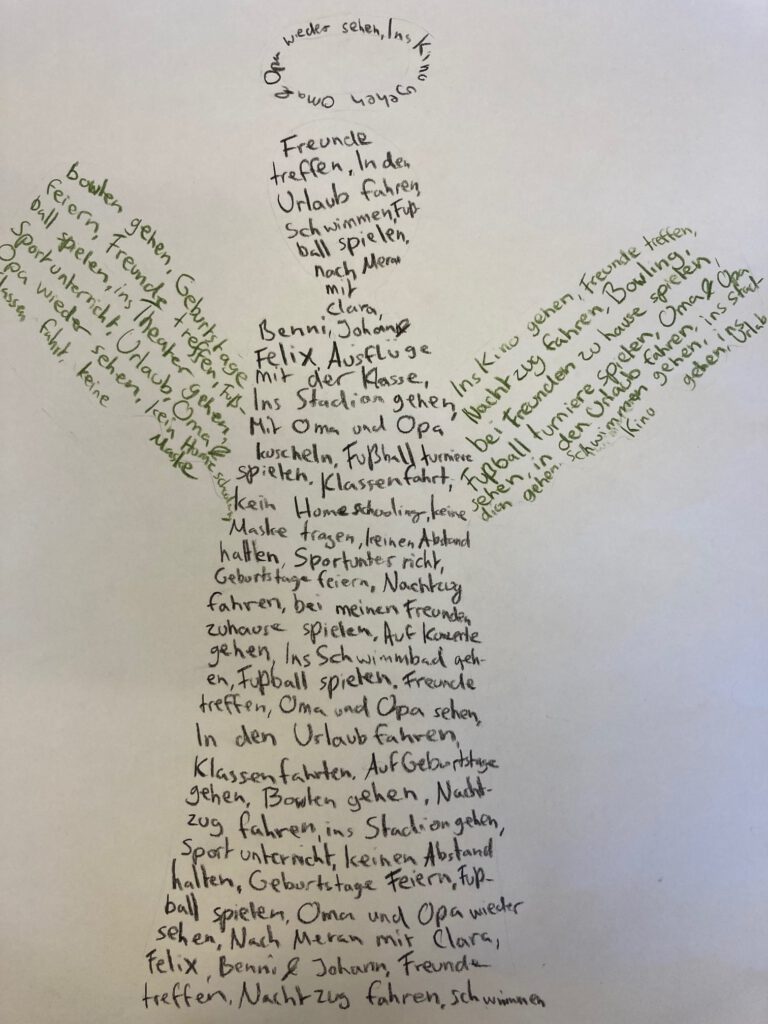 Opa wieder sehen, Ins Kino
gehen Oma &
Freunde
treffen, In den
Urlaub fahren,
Schwimmen, Fuß-
ball spielen,
nach Meran
mit
Clara,
Benni, Johann &
Felix, Ausflüge
mit der Klasse,
Ins Stadion gehen,
Mit Oma und Opa
kuscheln, Fußball turniere
spielen. Klassenfahrt,
kein Homeschooling, keine
Maske tragen, keinen Abstand
halten, Sportunter richt,
Geburtstage feiern, Nachtzug
fahren, bei meinen Freunden
zuhause spielen, Auf Konzerte
gehen, Ins Schwimmbad geh-
en, Fußball spielen. Freunde
treffen, Oma und Opa sehen,
In den Urlaub fahren,
Klassenfahrten, Auf Geburtstage
gehen, Bowlen gehen, Nacht-
zug fahren, ins Stadion gehen,
Sport unterricht, keinen Abstand
halten, Geburtstage Feiern, Fuß-
ball spielen, Oma und Opa wieder
sehen, Nach Meran mit Clara,
Felix, Benni & Johann, Freunde
treffen, Nacht zug fahren, schwimmen
bowlen gehen, Geburtstage
feiern, Freunde treffen, Fuß-
ball spielen, ins Theater gehen,
Sportunterricht, Urlaub, Oma &
Opa wieder sehen, kein Home schooling
klassen fahrt, keine
Maske
Ins Kino gehen, Freunde treffen,
Nacht zug fahren, Bowling,
bei Freunden zu hause spielen,
Fußball turniere spielen, Oma & Opa
sehen, in den Urlaub fahren, ins Sta-
dion gehen. Schwimmen gehen, ins
Kino gehen, Urlaub